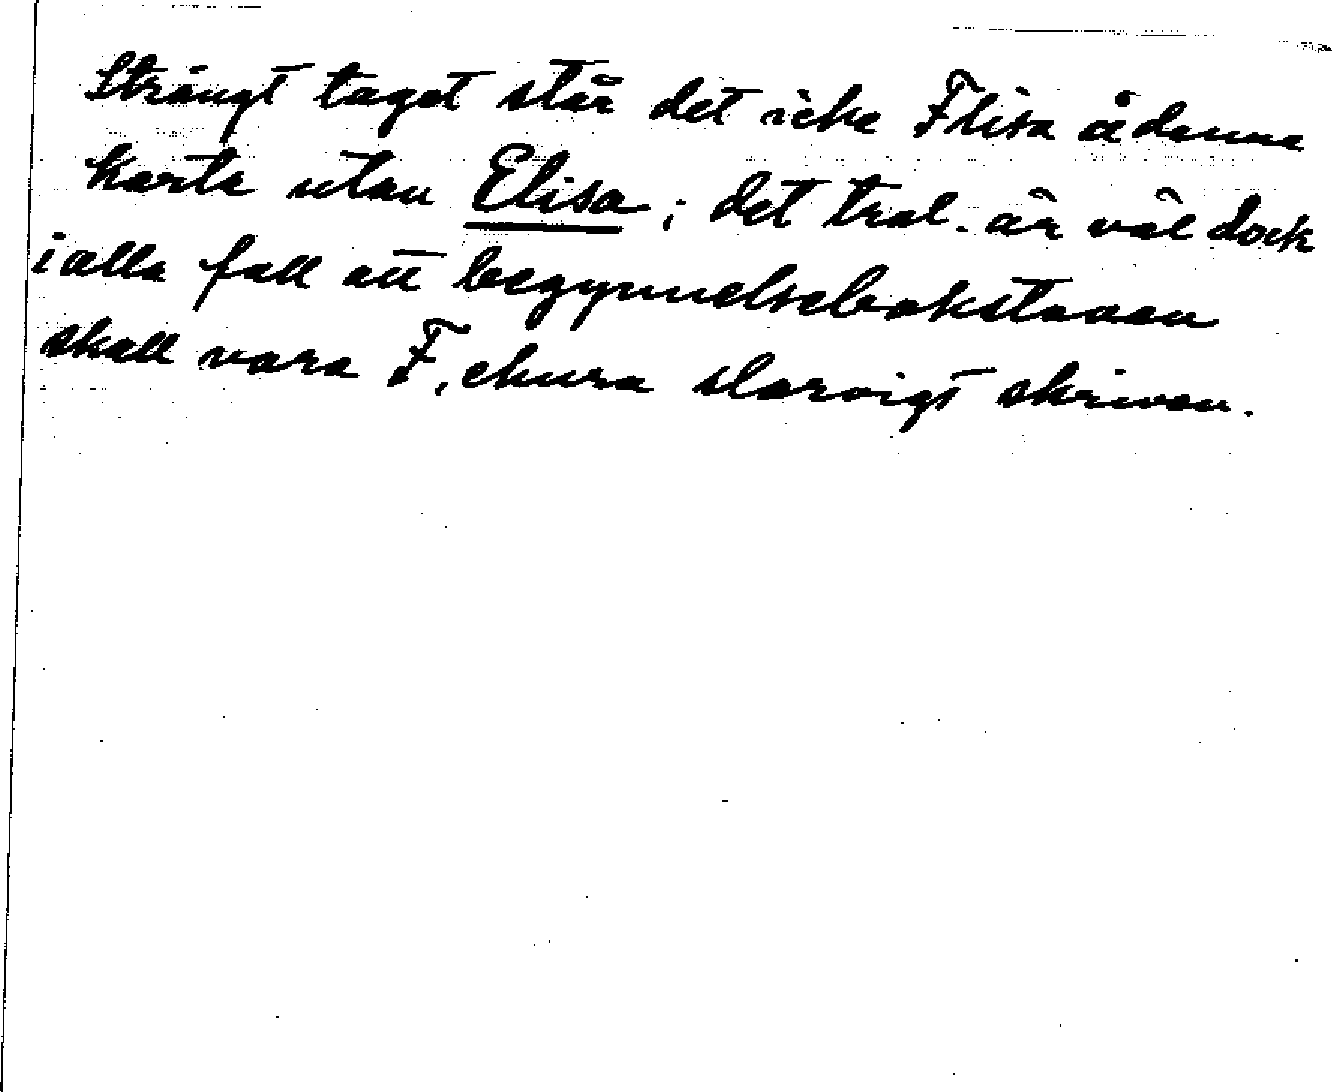 Strängt taget står det icke Flisa å denna
karta utan Elisa; det trol. är väl dock
i alla fall att begynnelsebokstaven
skall vara F, ehuru slarvigt skriven.